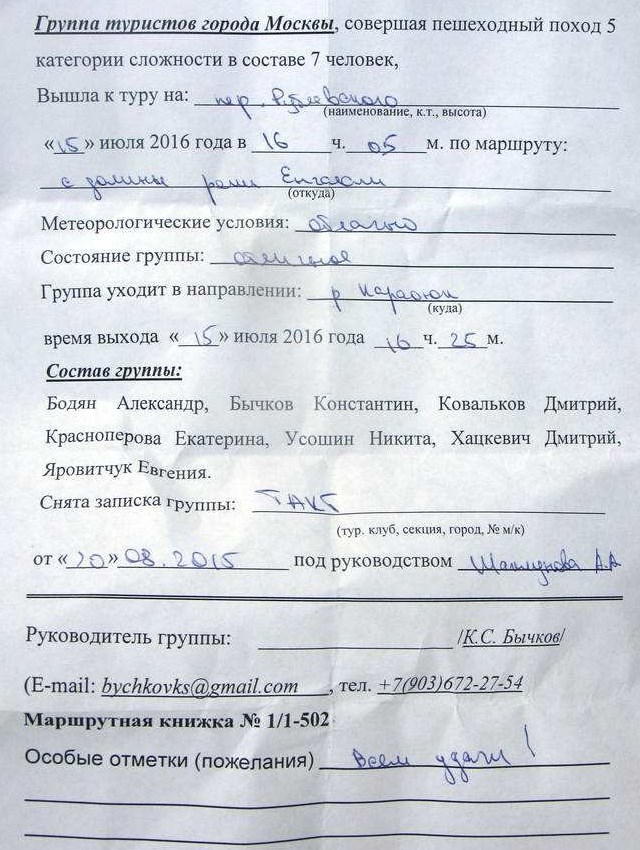 Группа туристов города Москвы, совершая пешеходный поход 5
категории сложности в составе 7 человек,
Вышла к туру на: пер.
(наименование, к.т., высота)
«15» июля 2016 года в 16 ч. 05 м. по маршруту:
с долины реки
(откуда)
Метеорологические условия: облачно
Состояние группы: отличное
Группа уходит в направлении: р Караоюк
(куда)
время выхода «15» июля 2016 года 16 ч. 25 м.
Состав группы:
Бодян Александр, Бычков Константин, Ковальков Дмитрий,
Красноперова Екатерина, Усошин Никита, Хацкевич Дмитрий,
Яровитчук Евгения.
Снята записка группы: ТАКТ
(тур. клуб, секция, город, № м/к)
от «20» 08.2015 под руководством А.А
Руководитель группы: /К.С. Бычков/
(E-mail: bychkovks@gmail.com, тел. +7(903)672-27-54
Маршрутная книжка № 1/1-502
Особые отметки (пожелания) Всем удачи!